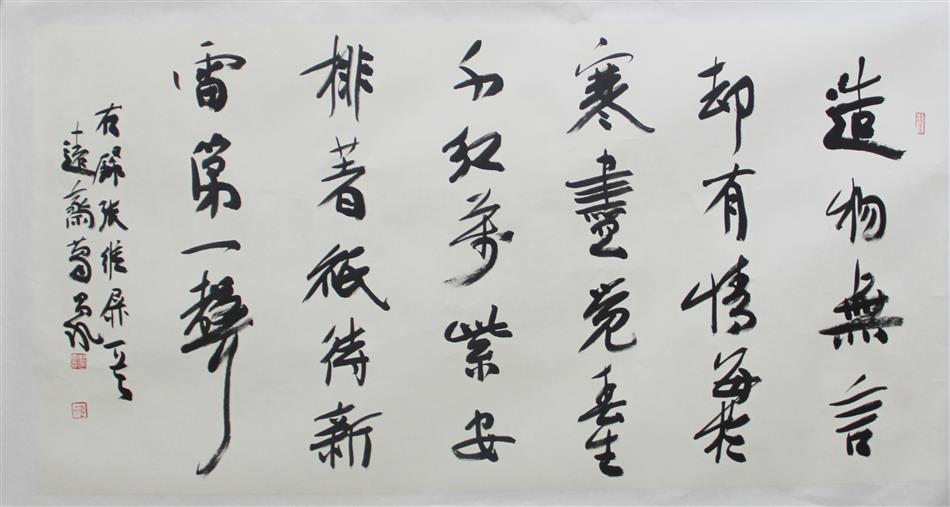 造物無言
却有情每於
寒盡覺春生
千紅萬紫安
排著祇待新
雷第一聲
右録張維屏一首
遠齋葛